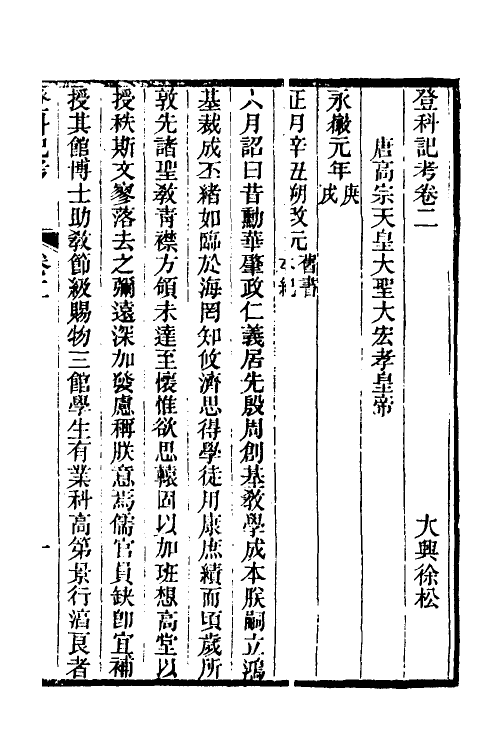 登科記考卷二
大興徐松
唐高宗天皇大聖大宏孝皇帝
永徽元年庚戌
正月辛丑朔改元舊書本紀
六月詔曰昔勳華肇政仁義居先殷周創基敎學成本朕嗣立鴻
基裁成丕緒如臨於海罔知攸濟思得學徒用康庶績而頃歲所
敦先諸聖敎靑襟方領未達至懷惟欲思轅固以加班想高堂以
授秩斯文寥落去之彌遠深加發慮稱朕意焉儒官員缺卽宜補
授其館博士助敎節級賜物三館學生有業科高第景行湻良者
登科記考
卷二
一